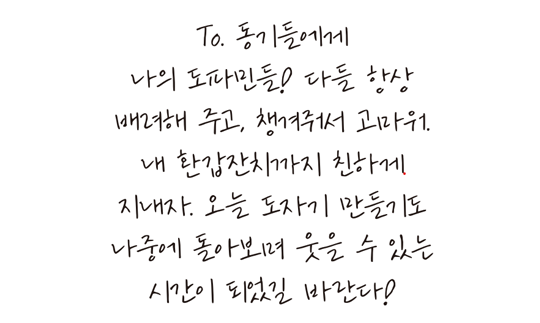 To. 동기들에게
나의 도파민들! 다들 항상
배려해 주고, 챙겨줘서 고마워.
내 환갑잔치까지 친하게
지내자. 오늘 도자기 만들기도
나중에 돌아보며 웃을 수 있는
시간이 되었길 바란다!